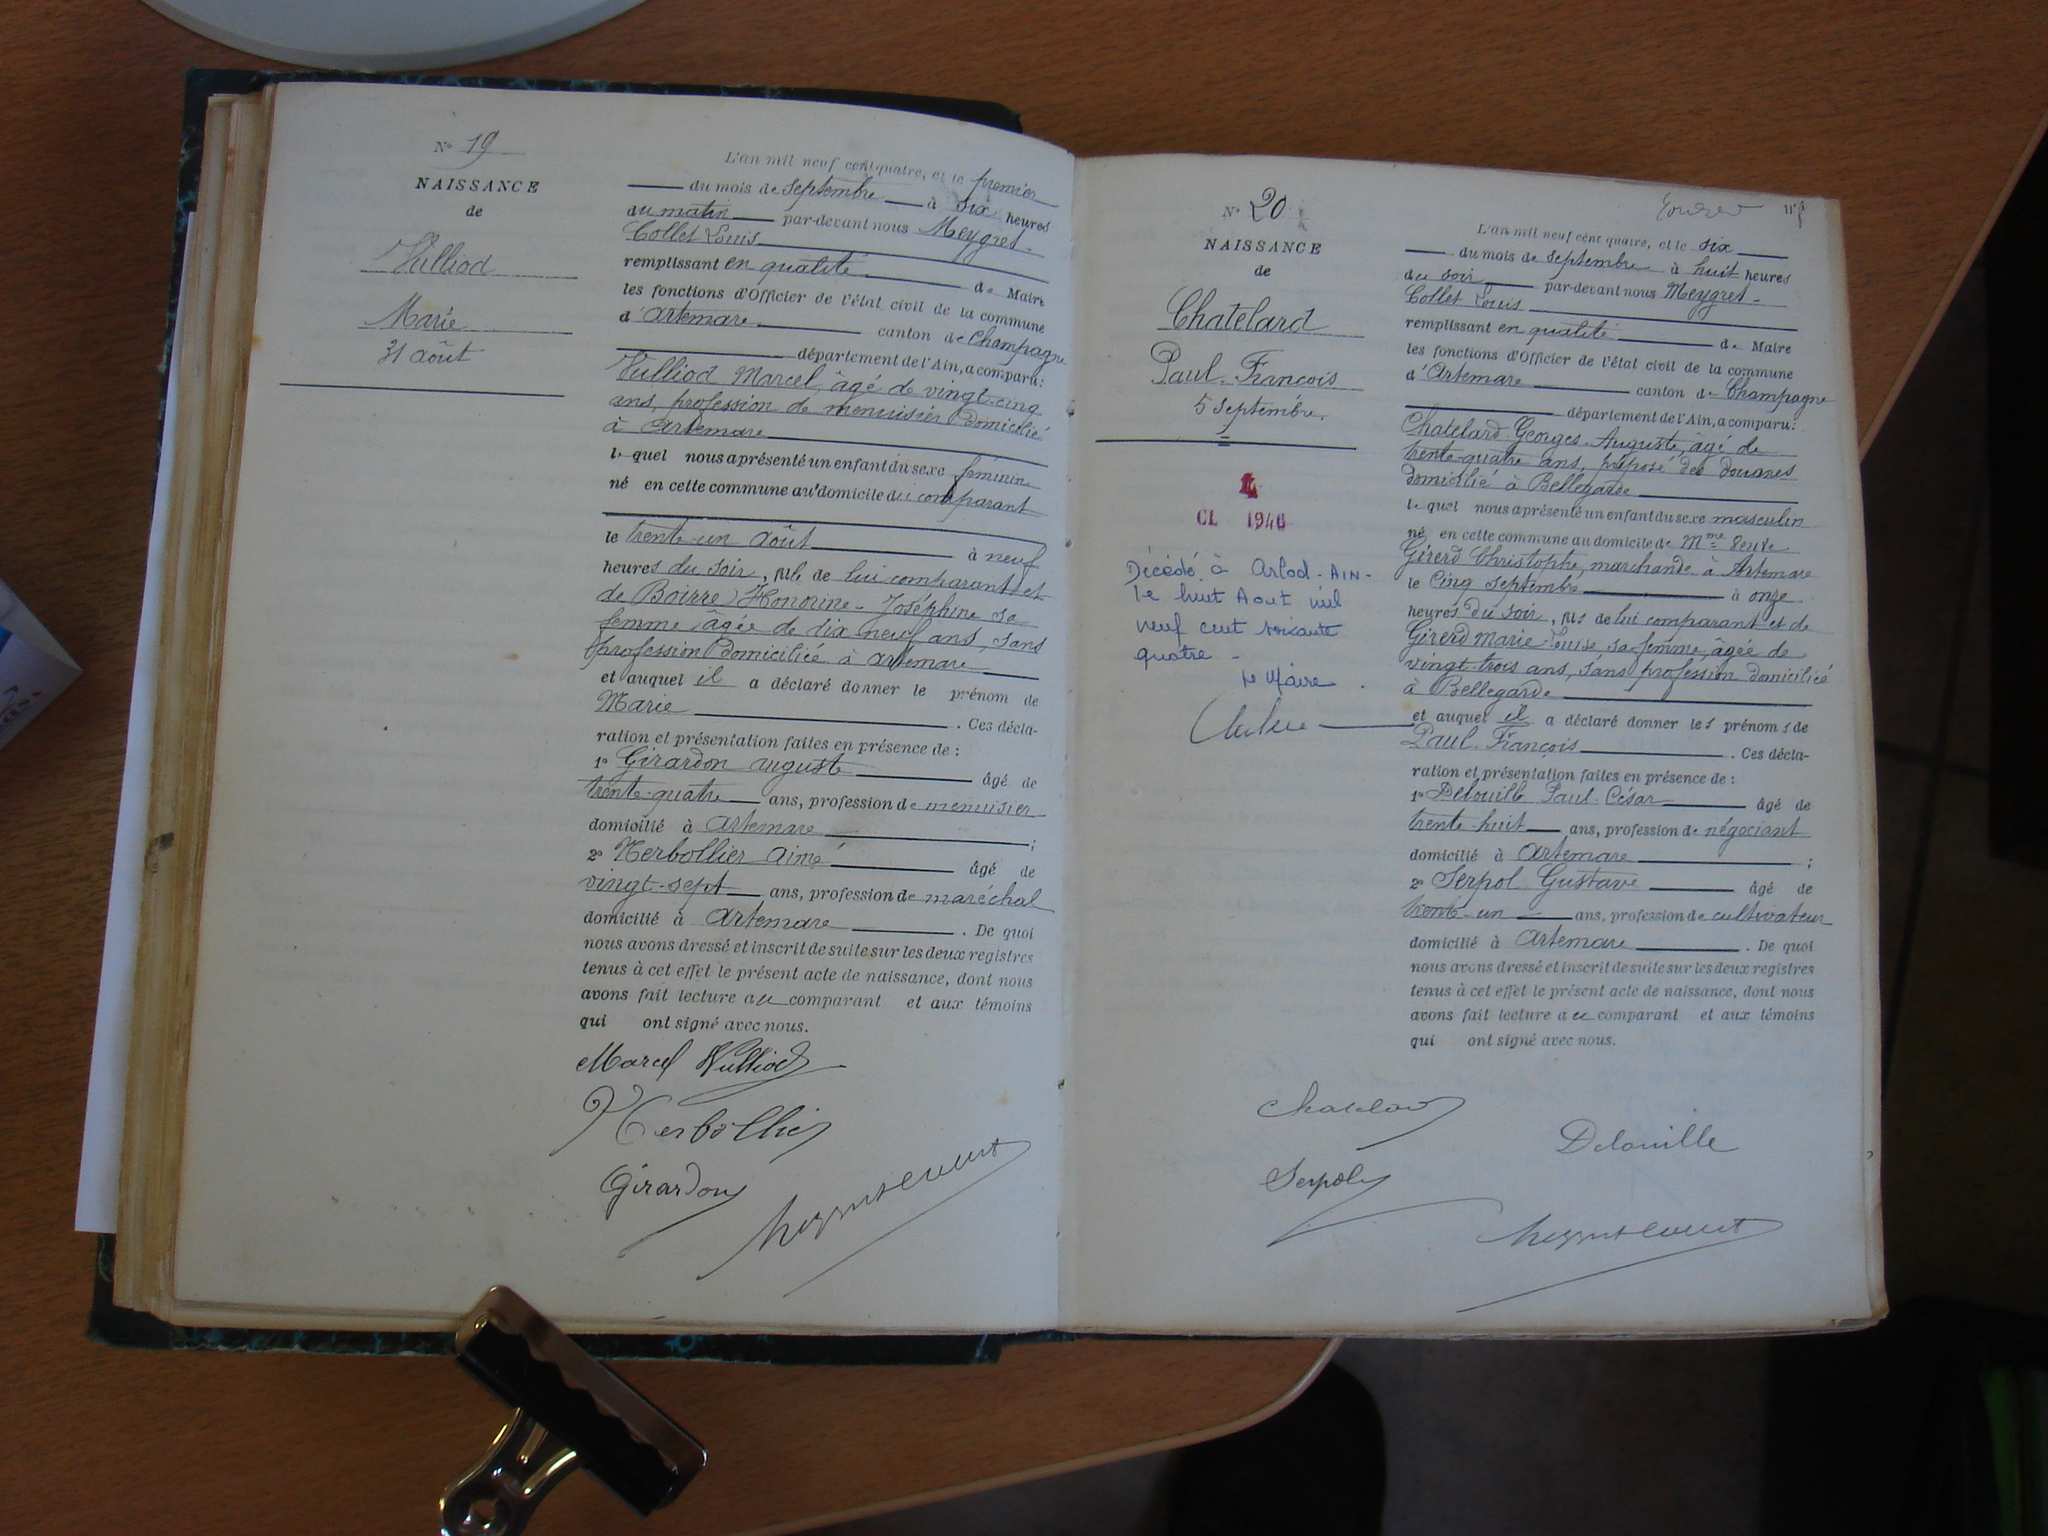 N° 19
NAISSANCE
de
Vulliod
Marie
31 août
L'an mil neuf cent quatre, et le premier
du mois de septembre à six heures
du matin par-devant nous Meygret-
Collet Louis
remplissant en qualité de Maire
les fonctions d'Officier de l'état civil de la commune
d'Artemare canton de Champagne
département de l'Ain, a comparu:
Vulliod Marcel, âgé de vingt-cinq
ans, profession de menuisier domicilié
à Artemare
lequel nous a présenté un enfant du sexe féminin
né en cette commune au domicile du comparant
le trente-un août à neuf
heures du soir, fille de lui comparant et
de Honorine-Joséphine sa
femme, âgée de dix neuf ans, sans
profession domiciliée à Artemare
et auquel il a déclaré donner le prénom de
Marie . Ces décla-
ration et présentation faites en présence de :
1° Girardon auguste âgé de
trente-quatre ans, profession de menuisier
domicilié à Artemare ;
2° Herbollier aimé âgé de
vingt-sept ans, profession de maréchal
domicilié à Artemare . De quoi
nous avons dressé et inscrit de suite sur les deux registres
tenus à cet effet le présent acte de naissance, dont nous
avons fait lecture au comparant et aux témoins
qui ont signé avec nous.
Marcel Vulliod
Herbollier
Girardon
N° 20
NAISSANCE
de
Chatelard
Paul-François
5 septembre.
4
CL 1940
Décédé à Arlod-AIN-
le huit Aout mil
neuf cent soixante
quatre -
le Maire
L'an mil neuf cent quatre, et le six
du mois de septembre à huit heures
du soir par-devant nous Meygret-
Collet Louis
remplissant en qualité de Maire
les fonctions d'Officier de l'état civil de la commune
d'Artemare canton de Champagne
département de l'Ain, a comparu:
Chatelard Georges-Auguste, âgé de
trente-quatre ans, préposé des douanes
domicilié à Bellegarde
lequel nous a présenté un enfant du sexe masculin
né en cette commune au domicile de Mme veuve
Girerd Christophe, marchande à Artemare
le cinq septembre à onze
heures du soir, fils de lui comparant et de
Girerd Marie-Louise, sa femme, âgée de
vingt-trois ans, sans profession domiciliée
à Bellegarde
et auquel il a déclaré donner les prénoms de
Paul-François . Ces décla-
ration et présentation faites en présence de :
1° Delouille Paul-César âgé de
trente-huit ans, profession de négociant
domicilié à Artemare ;
2° Serpol Gustave âgé de
trente-un ans, profession de cultivateur
domicilié à Artemare . De quoi
nous avons dressé et inscrit de suite sur les deux registres
tenus à cet effet le présent acte de naissance, dont nous
avons fait lecture au comparant et aux témoins
qui ont signé avec nous.
Chatelard
Delouille
Serpol